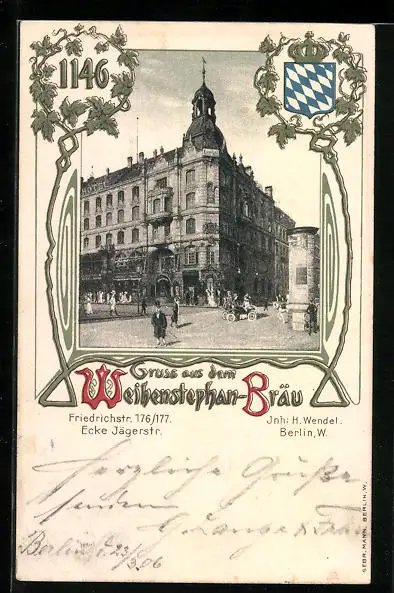 1146
HOTEL
Gruss aus dem
Weihenstephan-Bräu
Friedrichstr. 176/177.
Ecke Jägerstr.
Jnh: H. Wendel.
Berlin, W.
Herzliche Grüße
senden
Berlin d. 23/3.06
GEBR. MANN, BERLIN, W.